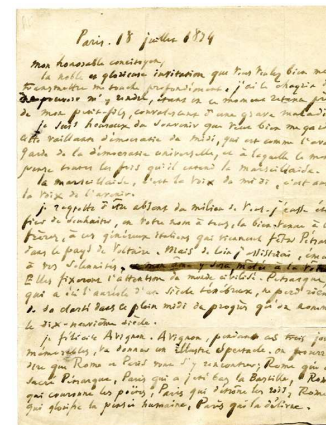 Paris. 18 juillet 1874
mon honorable concitoyen,
la noble et glorieuse invitation que vous voulez bien me
transmettre me touche profondément, j'ai le chagrin de
ne pouvoir m'y rendre, étant en ce moment retenu près
de mon petit-fils, convalescent d'une grave maladie
je suis heureux du souvenir que veut bien me garder
cette vaillante démocratie du midi, qui est comme l'avant
garde de la démocratie universelle, et à laquelle le monde
pense toutes les fois qu'il entend la marseillaise.
la marseillaise, c'est la voix du midi, c'est aussi
la voix de l'avenir.
je regrette d'être absent du milieu de vous. j'eusse été
fier de souhaiter, en votre nom à tous, la bienvenue à ces
frères, à ces généreux italiens qui viennent fêter Pétrarque
dans le pays de Voltaire. Mais de loin j'assisterai, ému
à vos solennités,
Elles fixeront l'attention du monde civilisé. Pétrarque
qui a été l'auréole d'un siècle ténébreux, ne perd rien
de sa clarté dans ce plein midi du progrès qu'on nomme
le dix-neuvième siècle.
je félicite Avignon. Avignon, pendant ces trois jours
mémorables, va donner un illustre spectacle. on pourrait
dire que Rome et Paris vont s'y rencontrer; Rome qui a
sacré Pétrarque, Paris qui a jeté bas la Bastille; Rome
qui couronne les poètes, Paris qui détrône les rois; Rome
qui glorifie la pensée humaine, Paris qui la délivre.